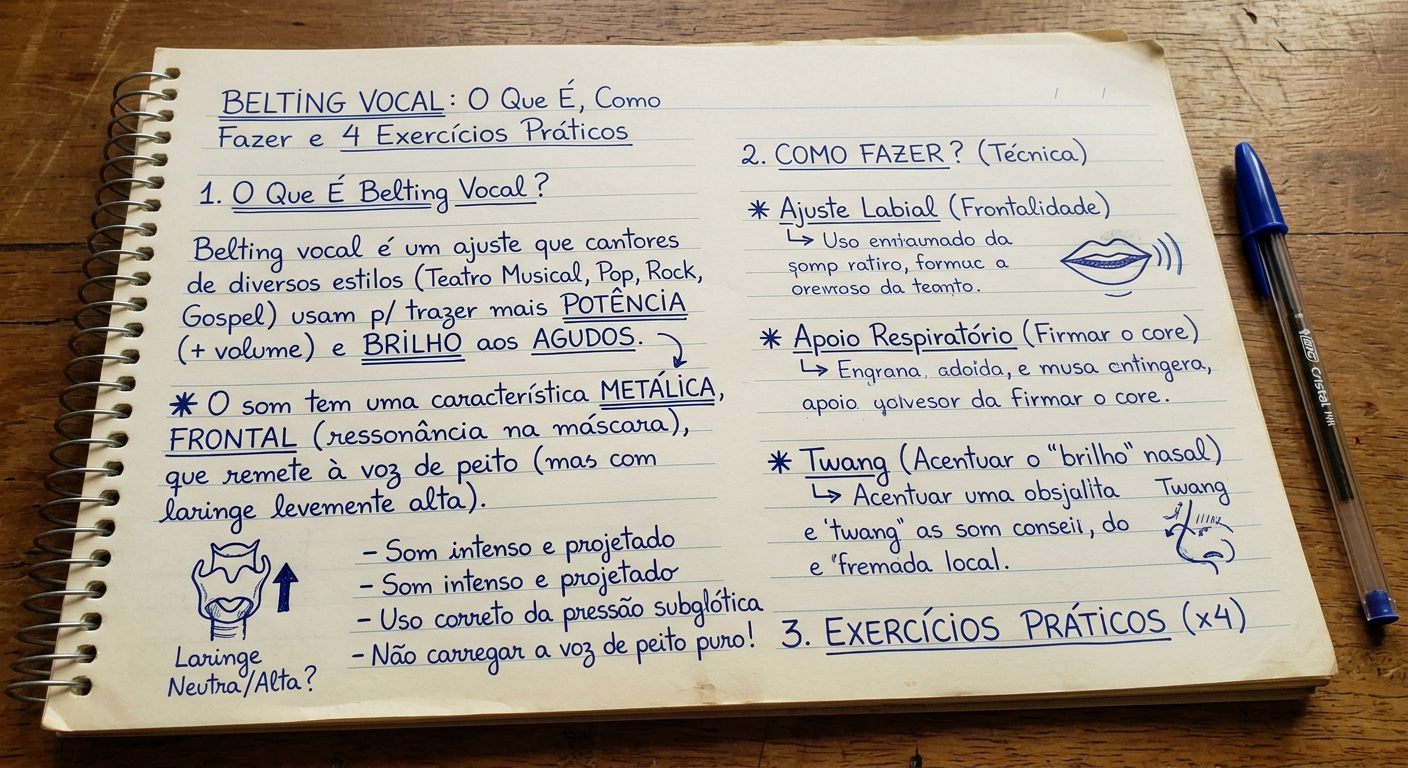 BELTING VOCAL: O Que É, Como
Fazer e 4 Exercícios Práticos
1. O Que É Belting Vocal?
Belting vocal é um ajuste que cantores
de diversos estilos (Teatro Musical, Pop, Rock,
Gospel) usam p/ trazer mais POTÊNCIA
(+ volume) e BRILHO aos AGUDOS.
* O som tem uma característica METÁLICA,
FRONTAL (ressonância na máscara),
que remete à voz de peito (mas com
laringe levemente alta).
- Som intenso e projetado
- Som intenso e projetado
- Uso correto da pressão subglótica
- Não carregar a voz de peito puro!
Laringe
Neutra/Alta?
2. COMO FAZER? (Técnica)
* Ajuste Labial (Frontalidade)
↳ Uso da
somp ratiro, formuc a
da
* Apoio Respiratório (Firmar o core)
↳ Engrana, adoida, e musa cntingera,
apoio yolvesor da firmar o core.
* Twang (Acentuar o "brilho" nasal)
↳ Acentuar uma obsjalita
e 'twang" as som conseii, do
e "fremada local.
Twang
3. EXERCÍCIOS PRÁTICOS (x4)
Cristal